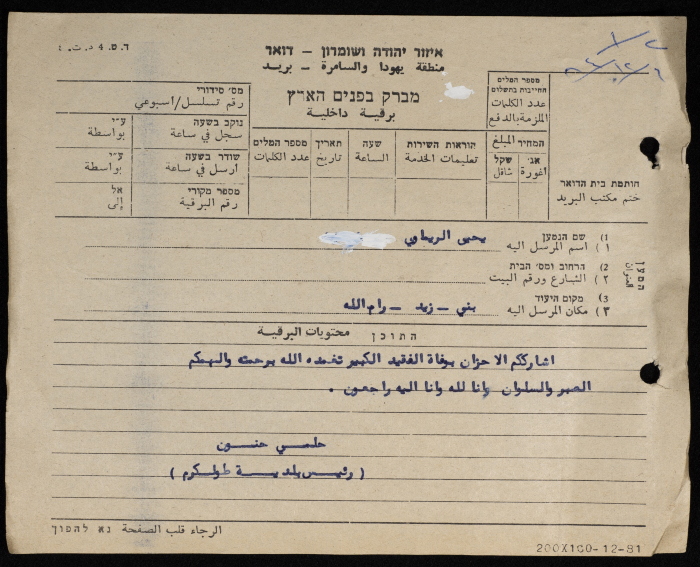 ד.ס. 4 ד.ת.
איזור יהודה ושומרון - דואר
منطقة يهودا والسامرة - بريد
מברק בפנים הארץ
برقية داخلية
מס׳ סידורי
رقم تسلسل/اسبوعي
מספר המלים החייבות בתשלום
عدد الكلمات الملزمة بالدفع
נוקב בשעה
سجل في ساعة
ע״י
بواسطة
שודר בשעה
ارسل في ساعة
ע״י
بواسطة
מספר מקורי
رقم البرقية
אל
إلى
מספר המלים
عدد الكلمات
תאריך
تاريخ
שעה
الساعة
הוראות השירות
تعليمات الخدمة
המחיר المبلغ
שקל
شاقل
אג׳
اغورة
חותמת בית הדואר
ختم مكتب البريد
המען
العنوان
1) שם הנמען
١) اسم المرسل اليه
يحيى الريماوي
2) הרחוב ומס׳ הבית
٢) الشارع ورقم البيت
3) מקום היעוד
٣) مكان المرسل اليه
بني - زيد - رام الله
התוכן محتويات البرقية
اشارككم الاحزان بوفاة الفقيد الكبير تغمده الله برحمته والهمكم
الصبر والسلوان وانا لله وانا اليه راجعون.
حلمي حنون
(رئيس بلدية طولكرم)
الرجاء قلب الصفحة נא להפוך
200X100-12-81